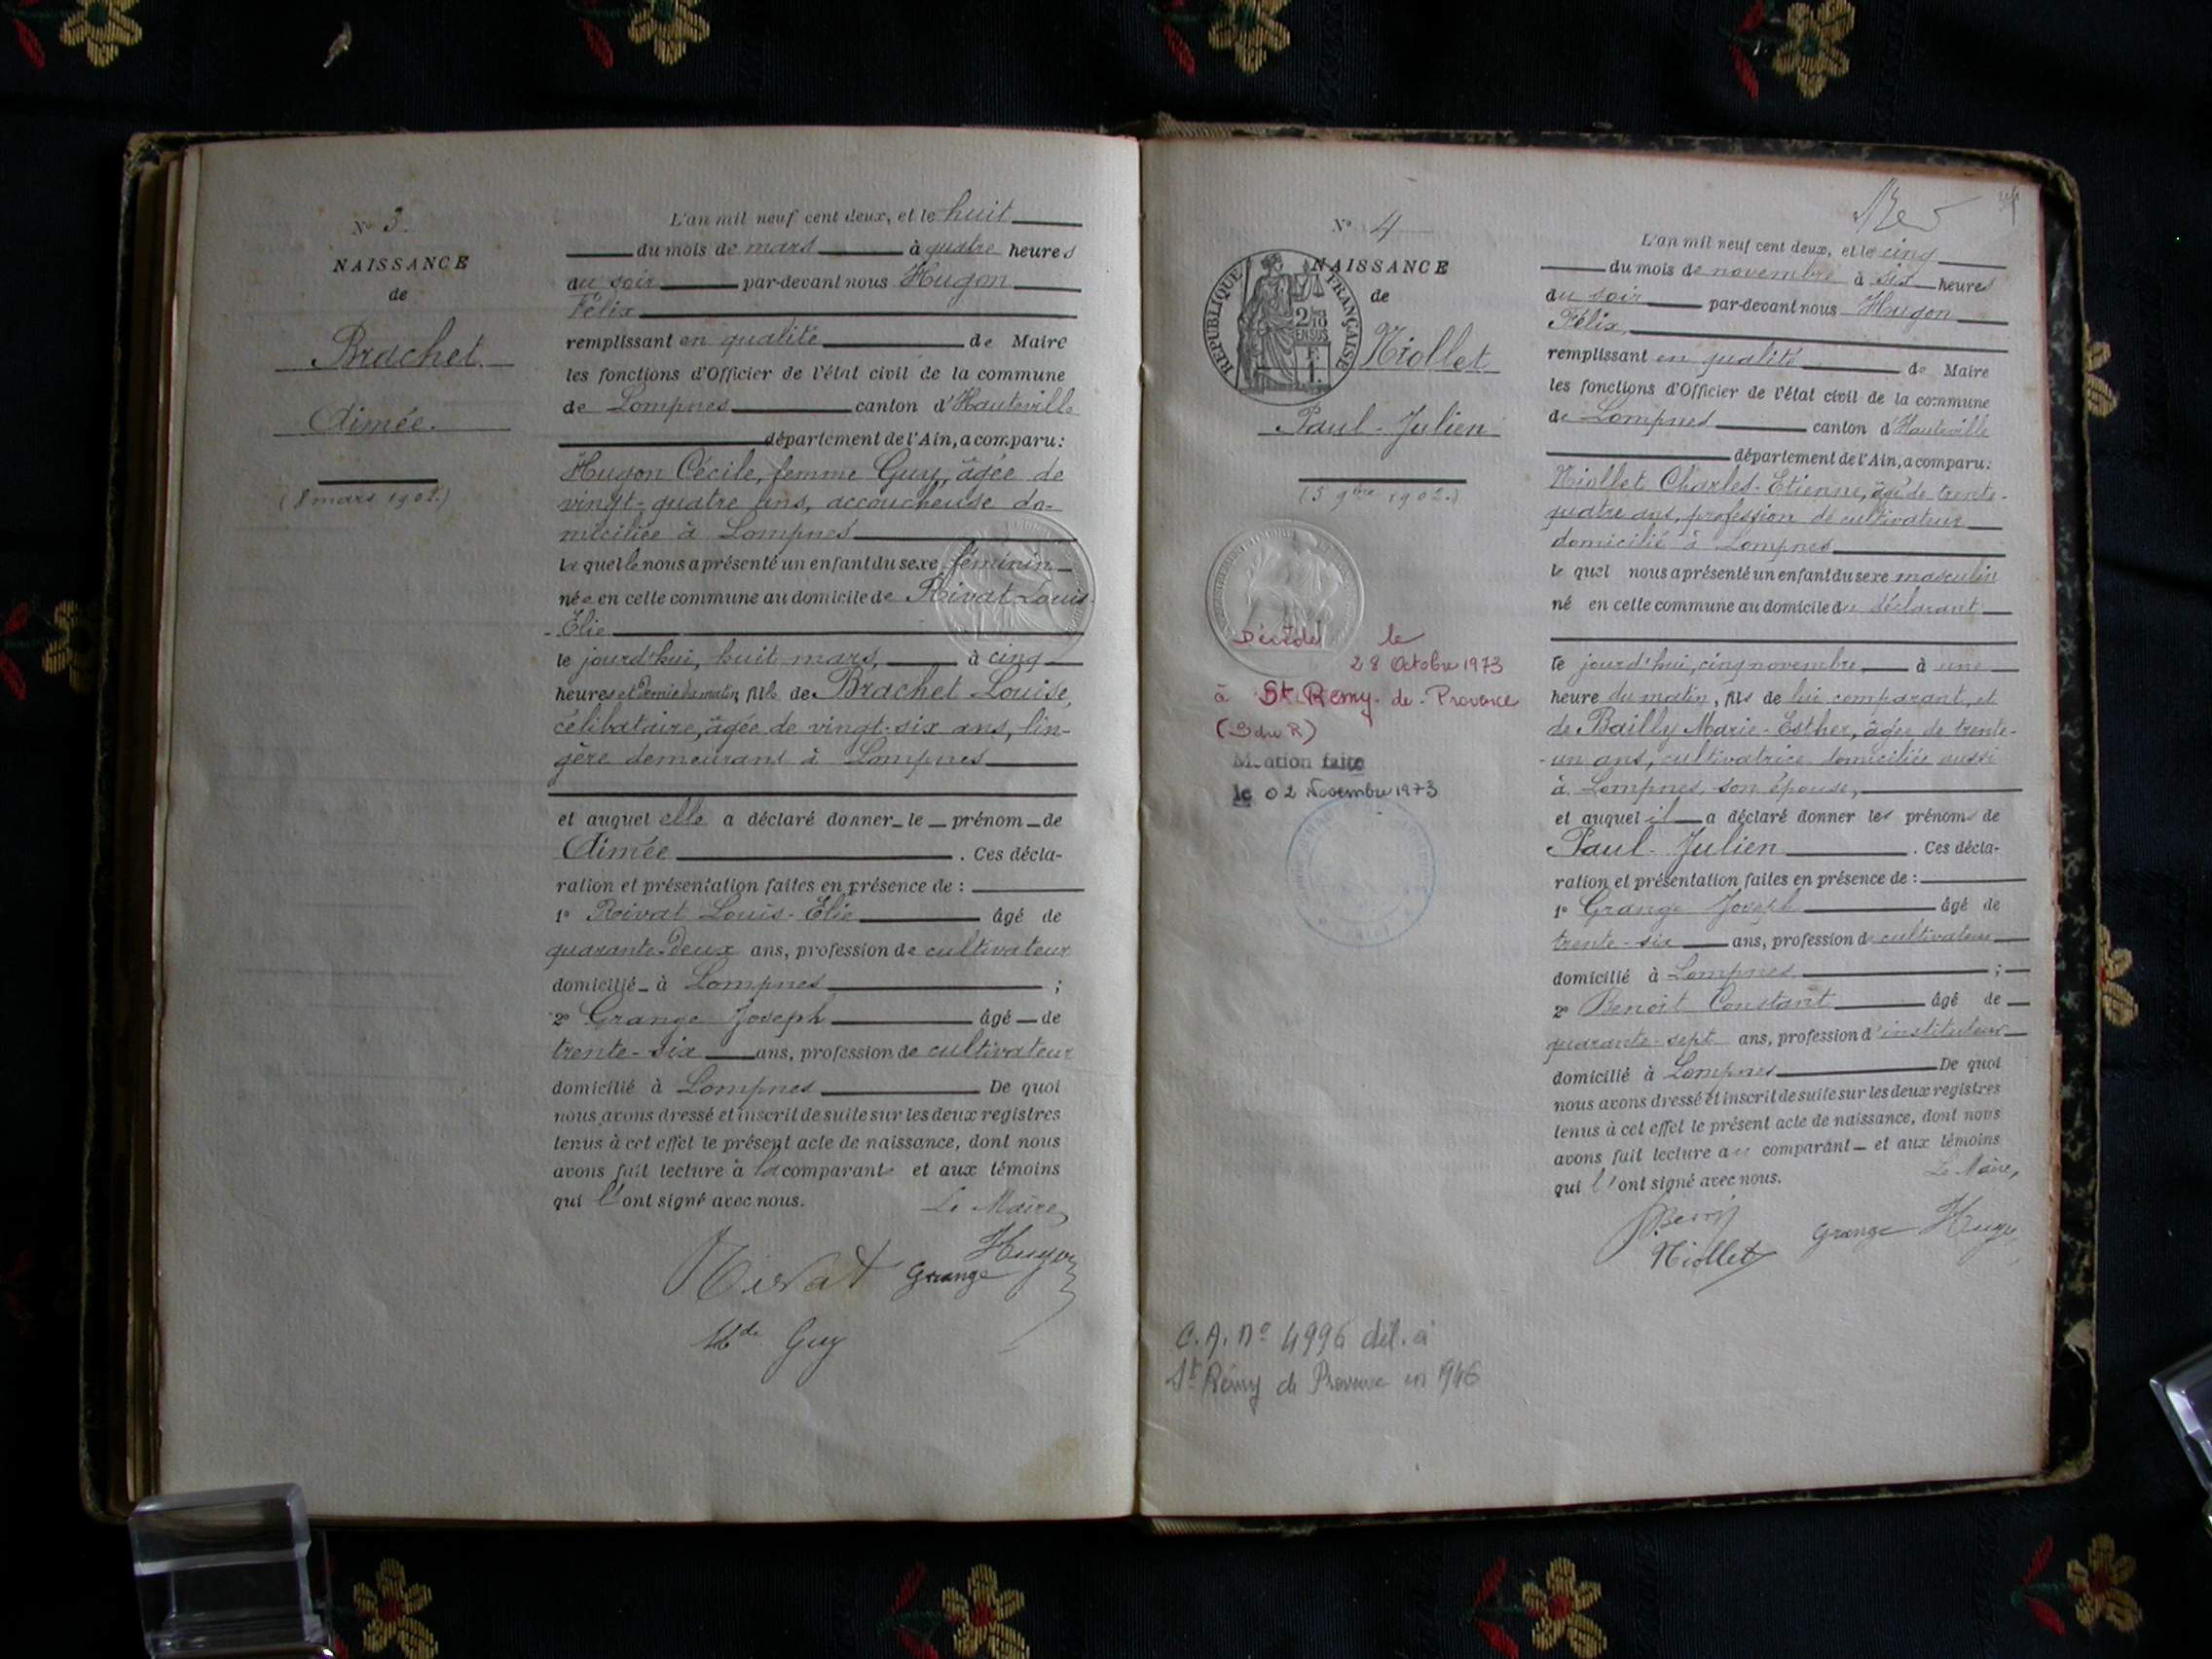 Nº 3.
NAISSANCE
de
Brachet
Aimée.
(8 mars 1902.)
L'an mil neuf cent deux, et le huit
du mois de mars à quatre heures
du soir par-devant nous Hugon
Félix
remplissant en qualité de Maire
les fonctions d'Officier de l'état civil de la commune
de Lompnes canton d'Hauteville
département de l'Ain, a comparu:
Hugon Cécile, femme Guy, âgée de
vingt-quatre ans, accoucheuse do-
miciliée à Lompnes
laquelle nous a présenté un enfant du sexe féminin
née en cette commune au domicile de Rivat Louis-
Élie
le jourd'hui, huit mars, à cinq
heures et demie du matin, fille de Brachet Louise,
célibataire, âgée de vingt-six ans, lin-
gère demeurant à Lompnes
et auquel elle a déclaré donner le prénom de
Aimée. Ces décla-
ration et présentation faites en présence de :
1º Rivat Louis-Élie âgé de
quarante-deux ans, profession de cultivateur
domicilié à Lompnes ;
2º Grange Joseph âgé de
trente-six ans, profession de cultivateur
domicilié à Lompnes De quoi
nous avons dressé et inscrit de suite sur les deux registres
tenus à cet effet le présent acte de naissance, dont nous
avons fait lecture à la comparante et aux témoins
qui l'ont signé avec nous.
Le Maire,
Hugon
Rivat Grange
Guy
Nº 4
NAISSANCE
de
RÉPUBLIQUE FRANÇAISE
Niollet
Paul-Julien
(5 9bre 1902.)
Décédé le
28 Octobre 1973
à St Remy-de-Provence
(B du R)
Mention faite
le 02 Novembre 1973
C.A. nº 4996 dél. à
St Rémy de Provence en 1946
L'an mil neuf cent deux, et le cinq
du mois de novembre à six heures
du soir par-devant nous Hugon
Félix
remplissant en qualité de Maire
les fonctions d'Officier de l'état civil de la commune
de Lompnes canton d'Hauteville
département de l'Ain, a comparu:
Niollet Charles-Etienne, âgé de trente-
quatre ans, profession de cultivateur
domicilié à Lompnes
lequel nous a présenté un enfant du sexe masculin
né en cette commune au domicile du déclarant
le jourd'hui, cinq novembre, à une
heure du matin, fils de lui comparant, et
de Bailly Marie-Esther, âgée de trente-
-un ans, cultivatrice domiciliée aussi
à Lompnes, son épouse,
et auquel il a déclaré donner les prénoms de
Paul-Julien. Ces décla-
ration et présentation faites en présence de :
1º Grange Joseph âgé de
trente-six ans, profession de cultivateur
domicilié à Lompnes ;
2º Benoit Constant âgé de
quarante-sept ans, profession d'instituteur
domicilié à Lompnes De quoi
nous avons dressé et inscrit de suite sur les deux registres
tenus à cet effet le présent acte de naissance, dont nous
avons fait lecture au comparant et aux témoins
qui l'ont signé avec nous.
Le Maire,
Grange
Niollet